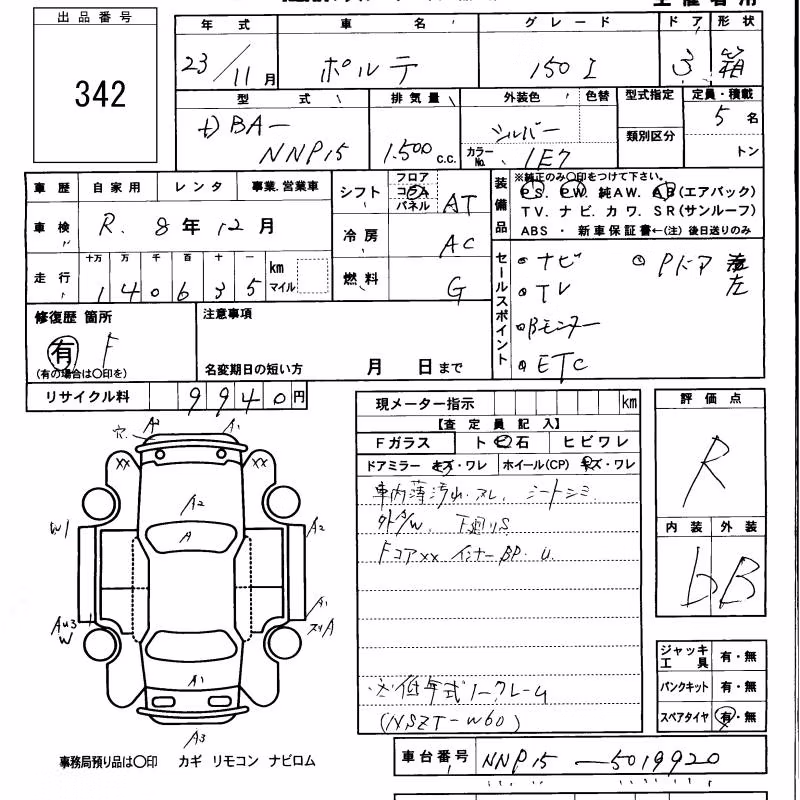 出品番号
342
年式 車名 グレード ドア 形状
23/11月 ポルテ 150 I 3 箱
型式 排気量 外装色 色替 型式指定 定員・積載
DBA-
NNP15 1.500 c.c. シルバー 類別区分 5 名
カラーNo. 1E7 トン
車歴 自家用 レンタ 事業.営業車
車検 R. 8年 12月
走行 十万 万 千 百 十 一 km マイル
1 4 0 6 3 5
シフト フロア コラム パネル AT
冷房 AC
燃料 G
装備品
※純正のみ〇印をつけて下さい。
P.S. P.W. 純AW. AB(エアバック)
TV. ナビ. カワ. SR(サンルーフ)
ABS ・ 新車保証書←(注) 後日送りのみ
セールスポイント
ナビ Pドア 左
TV
Bモニター
ETC
修復歴 箇所
有 F
(有の場合は〇印を)
注意事項
名変期日の短い方 月 日まで
リサイクル料 9940円
現メーター指示 km
【査定員記入】
Fガラス トビ石 ヒビワレ
ドアミラー キズ・ワレ ホイール(CP) キズ・ワレ
車内薄汚れ・スレ、シートシミ
外A/W. 下廻りS
Fコアxx インナーBP. U
※低年式1-クレーム
(NSZT-W60)
評価点
R
内装 外装
b B
ジャッキ工具 有・無
パンクキット 有・無
スペアタイヤ 有・無
穴 A2 A1
XX XX
A2
A
W1 A2
A1
AU3 W スリA
A1
A3
事務局預り品は〇印 カギ リモコン ナビロム
車台番号 NNP15-5019920